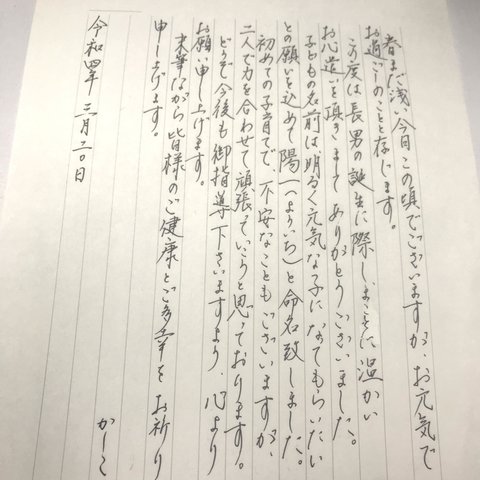 春まだ浅い今日この頃でございますが、お元気で
お過ごしのことと存じます。
この度は長男の誕生に際しまことに温かい
お心遣いを頂きましてありがとうございました。
子どもの名前は、明るく元気な子になってもらいたい
との願いを込めて陽一(よういち)と命名致しました。
初めての子育てで、不安なこともございますが、
二人で力を合わせて頑張っていこうと思っております。
どうぞ今後も御指導下さいますよう、心より
お願い申し上げます。
末筆ながら皆様のご健康とご多幸をお祈り
申し上げます。
かしこ
令和四年 三月二〇日